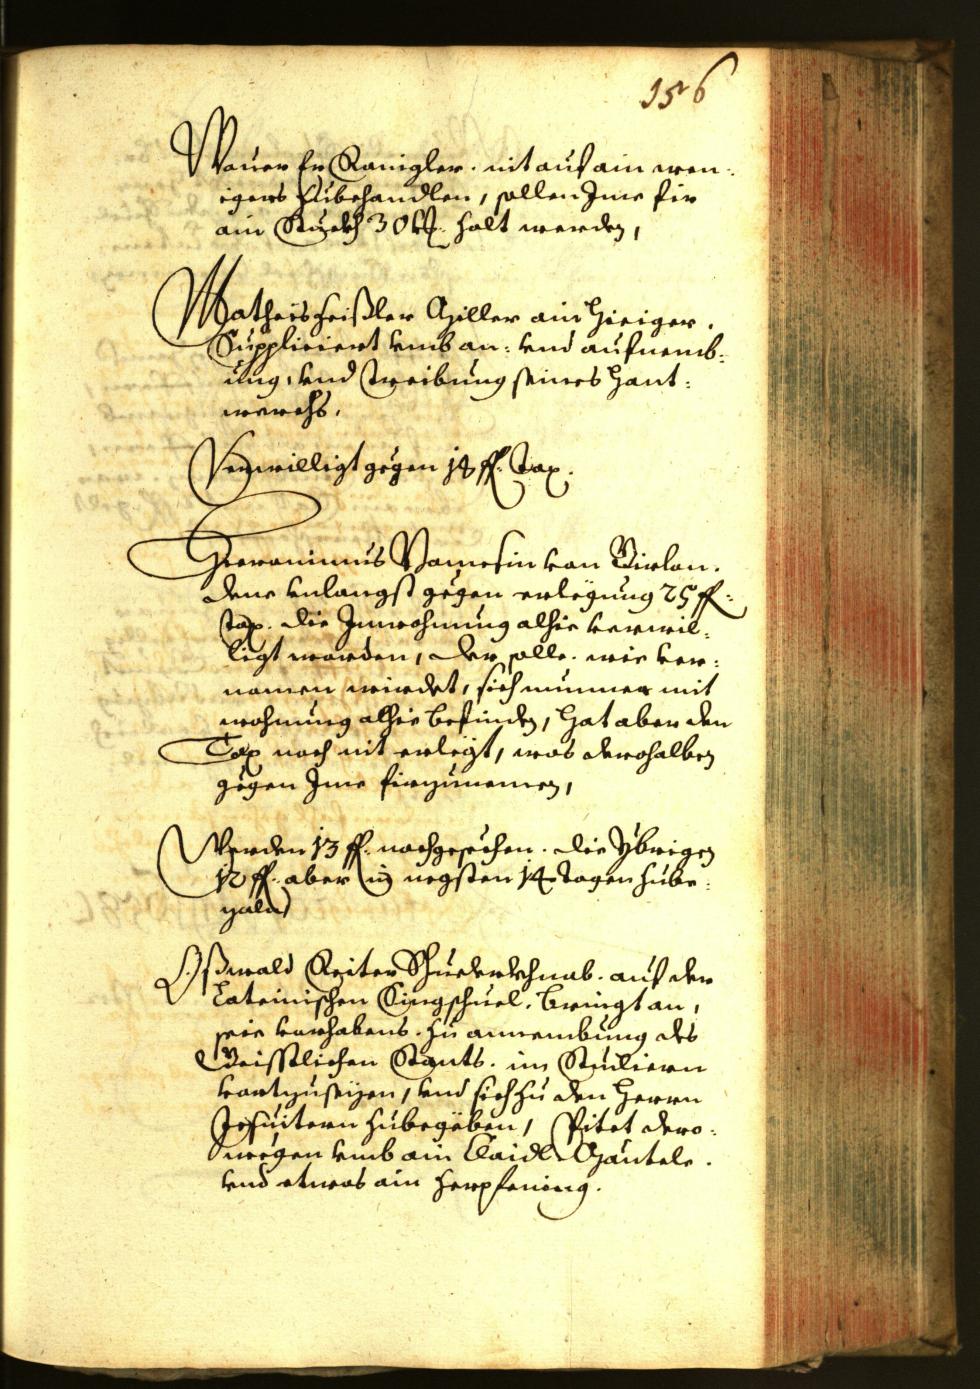 156
Wauer Er Ranigler. nit auf ain wen:
igers zubehandlen, sollen Ime fir
ain Stuckh 30 kr. halt werden,
Matheis heißler Miller ain hieiger.
Suppliciert umb an: und aufnemb:
ung, und treibung seines Hant:
werchs.
Verwilligt gegen 18 ff. Tax.
Hieronimus Vamesin von Tirlan.
deme unlangst gegen erlegung 25 ff:
tax. die Inwohnung alhie verwil:
ligt worden, der solle. wie ver:
nomen wirdet, sich nunmer mit
wohnung alhie befinden, hat aber den
Tax noch nit erlegt, was derohalben
gegen Ime firzunemen,
Werden 13 ff. nachgesechen. die ybrigen
12 ff. aber in negsten 14 tagen zube:
zaln
Oßwald Reiter Schuelerkhnab. auf der
Lateinischen Singschuel. bringt an,
seie vorhabens. zu annembung des
Geisstlichen Stants. im Studiern
vortzusezen, und sich zu den Herrn
Jesuitern zubegeben, Pitet dero:
wegen umb ain Claidl Mäntele.
und etwas ain Zerpfening.